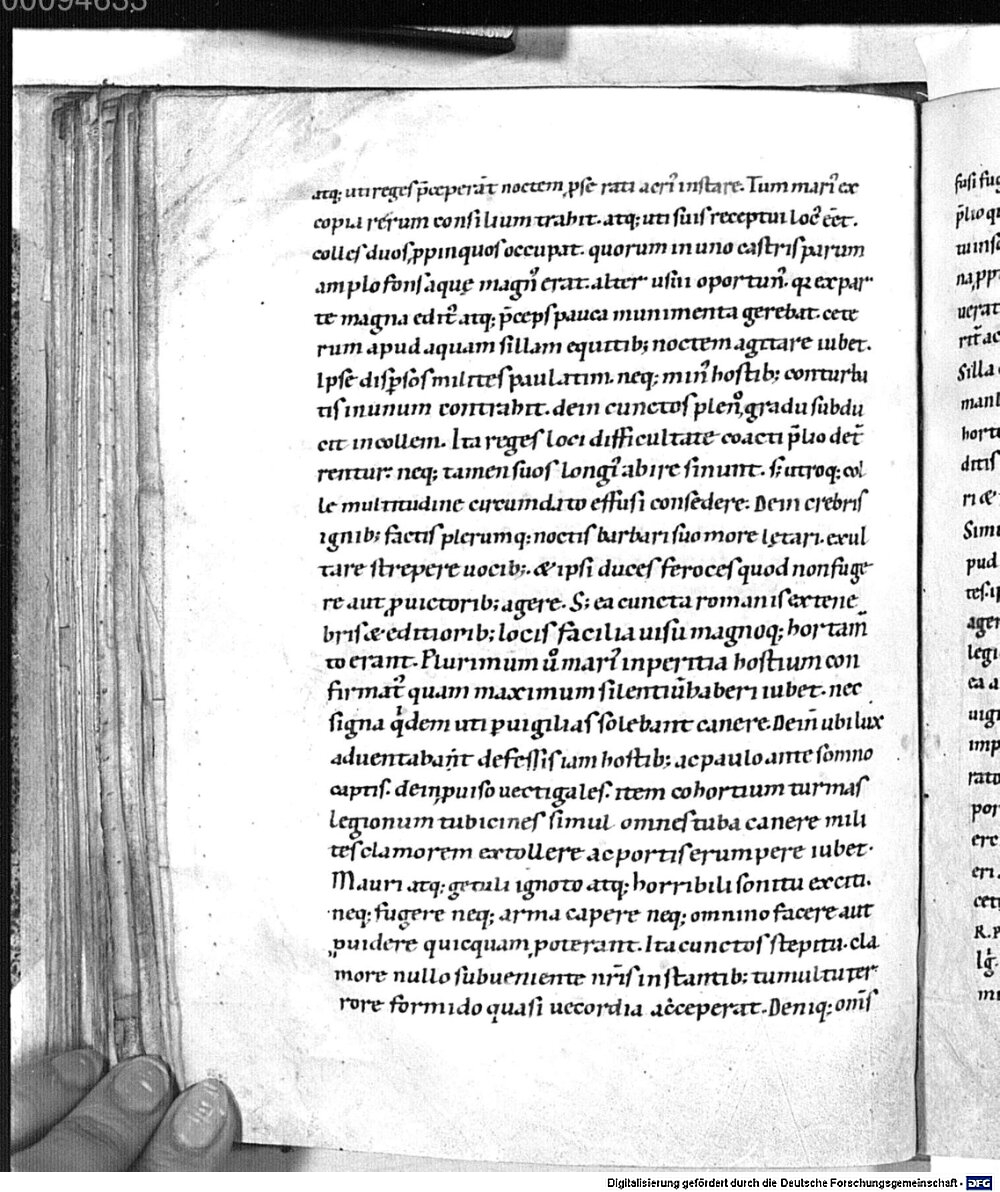 00094633
atq; uti reges p̄ceperāt noctem ꝓ se rati acri᷒ instare. Tum mari᷒ ex
copia rerum consilium trahit. atq; uti suis receptui loc᷒ eēt.
colles duos ꝓpinquos occupat. quorum in uno castris parum
amplo fons aquę magn᷒ erat. alter usui oportun᷒. qa ex par
te magna edit᷒ atq; p̄ceps pauca munimenta gerebat. cete
rum apud aquam sillam equitib; noctem agitare iubet.
Ipse disp̱sos milites paulatim. neq; min᷒ hostib; conturba
tis in unum contrahit. dein cunctos pleno gradu subdu
cit in collem. Ita reges loci difficultate coacti p̄lio det̄
rentur. neq; tamen suos longi᷒ abire sinunt. s; utroq; col
le multitudine circumdato effusi consedere. Dein crebris
ignib; factis plerumq; noctis barbari suo more lętari. exul
tare strepere uocib;. & ipsi duces feroces quod non fuge
re aut ꝓ uictorib; agere. S; ea cuncta romanis ex tene
bris & editiorib; locis facilia uisu magnoq; hortam̄
to erant. Plurimum u᷒o mari᷒ inperitia hostium con
firmat᷒ quam maximum silentiū haberi iubet. nec
signa qⁱdem uti ꝑ uigilias solebant canere. Dein̄ ubi lux
aduentabant defessis iam hostib; ac paulo ante somno
captis. de inprouiso uectigales. item cohortium turmas
legionum tubicines simul omnes tuba canere mili
tes clamorem extollere ac portis erumpere iubet.
Mauri atq; getuli ignoto atq; horribili sonitu exciti.
neq; fugere neq; arma capere neq; omnino facere aut
ꝓuidere quicquam poterant. Ita cunctos st̄epitu. cla
more nullo subueniente nr̄is instantib; tumultu ter
rore formido quasi uecordia acceperat. Deniq; om̄s
Digitalisierung gefördert durch die Deutsche Forschungsgemeinschaft - DFG